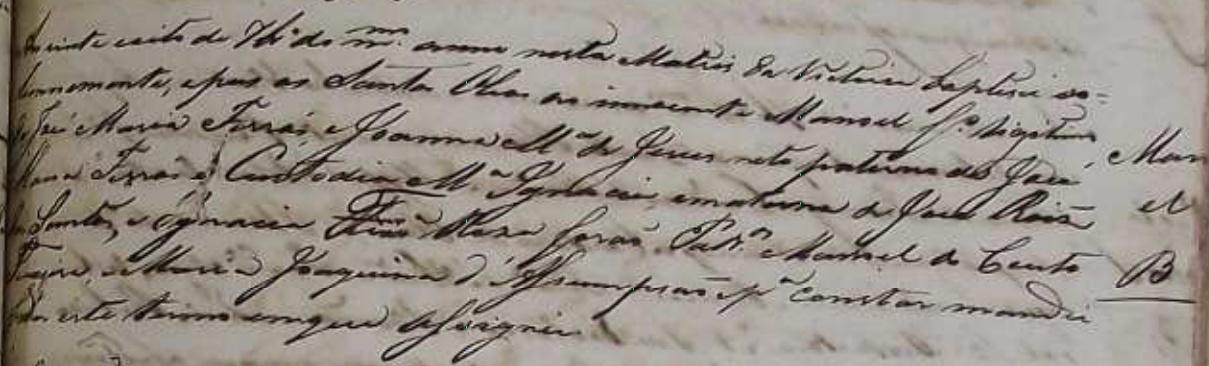 vinte e oito de 7bro do mmo anno nesta Matris da Victoria baptisei so=
lennemente, e pus os Santos Oleos ao innocente Manoel fo legitimo
José Maria Ferras, e Joanna Ma de Jesus neto paterno de José
Maria Ferras e Custodia Ma Ignacia, e materno de José
Santos, e Ignacia Rosa foraõ Padros Manoel do Couto
e Maria Joaquina d'Assumpsaõ e pa constar mandei
este termo em que assignei
Man
el
B